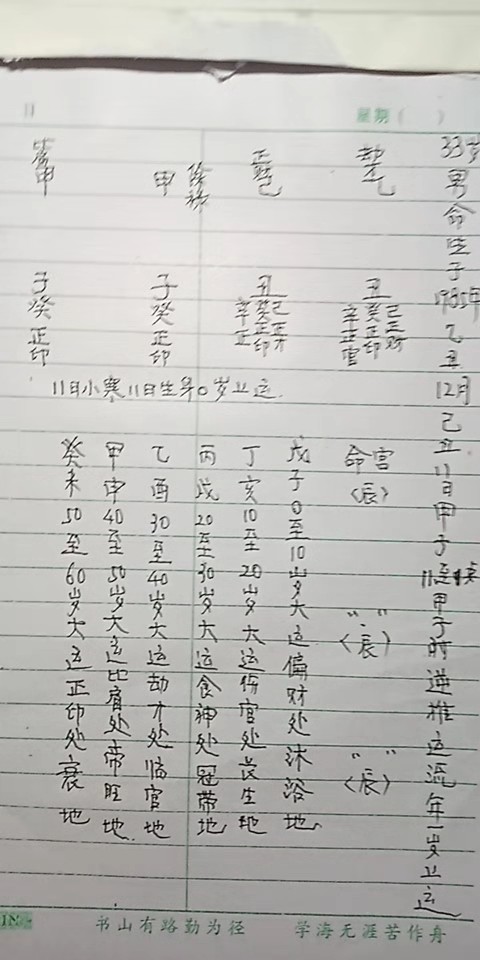 星期（ ）
33岁男命生于1985年乙丑12月己丑11日甲子11点甲子时逆推运流年一岁上运
劫才乙
正财己
日元
甲
甲
丑
己正财
癸正印
辛正官
丑
己正才
癸正印
辛正
子癸正印
子癸正印
11日小寒11日生算0岁上运.
命宫〈辰〉
〃〈辰〉
〃〈辰〉
戊子0至10岁大运偏财处沐浴地
丁亥10至20岁大运伤官处长生地
丙戌20至30岁大运食神处冠带地
乙酉30至40岁大运劫才处临官地
甲申40至50岁大运比肩处帝旺地.
癸未50至60岁大运正印处衰地
书山有路勤为径 学海无涯苦作舟